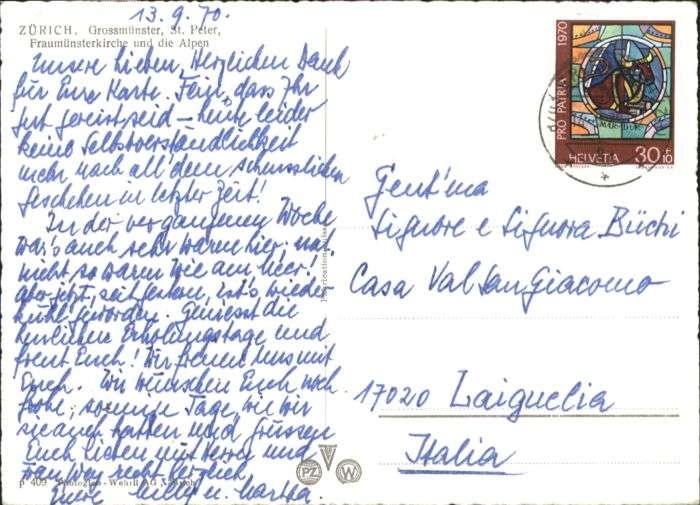 13.9.70.
ZÜRICH. Grossmünster, St. Peter,
Fraumünsterkirche und die Alpen
Unsere Lieben, Herzlichen Dank
für Eure Karte. Fein, dass Ihr
gut gereist seid – heute leider
keine Selbstverständlichkeit
mehr nach all dem scheusslichen
Geschehen in letzter Zeit!
In der vergangenen Woche
war's auch sehr warm hier. nur
nicht so warm wie am Meer!
Aber jetzt, seit gestern, ist's wieder
kühl geworden. Geniesst die
herrlichen Erholungstage und
freut Euch! Wir freuen uns mit
Euch. Wir wünschen Euch noch
frohe, sonnige Tage, wie wir
sie auch hatten und grüssen
Euch Lieben mit
recht herzlich
Eure Willi u. Martha.
p 409 Photoglob-Wehrli AG Zürich
PRO PATRIA 1970
HELVETIA 30+10
Gent'ma
Signore e Signora Büchi
Casa Val San Giacomo
17020 Laigueglia
Italia
PZ W